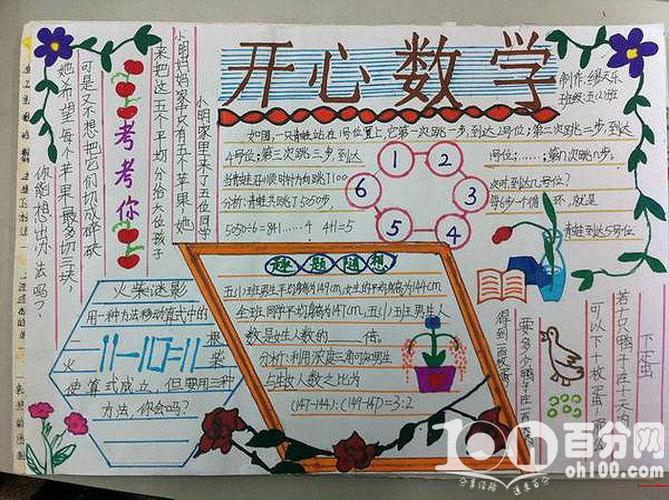 开心数学
制作:缪天乐
班级:五(2)班
如图,一只青蛙站在1号位置上,它第一次跳一步,到达2号位;第二次跳二步,到达
4号位;第三次跳三步,到达
号位;……第n次跳n步。
当青蛙沿顺时针方向跳了100
次时,到达几号位?
分析:青蛙共跳了5050步,
每6步一个循环,就是
5050÷6=841……4 4+1=5
青蛙到达5号位
1
2
3
4
5
6
考考你
小明家里来了五位同学
小明妈妈家中只有五个苹果,她
来把这五个平均分给六位孩子
可是又不想把它们切成碎碎
她希望每个苹果最多切三块,
你能想出办法吗?
火柴谜影
用一种方法移动算式中的
一
根
火
柴
11-117=11
使算式成立,但要用三种
方法,你会吗?
趣题随想
五(1)小班男生平均身高为149cm,女生的平均身高为144cm,
全班同学平均身高为147cm,五(1)小班男生人
数是女生人数的____倍。
分析:利用浓度三角可知男生
与女生人数之比为
(147-144):(149-147)=3:2
下蛋
若十只鸭子在十天内
可以下十枚蛋,那么
要多少鸭子在一百
得到一百枚蛋?
100百分网
oh100.com
分享经验